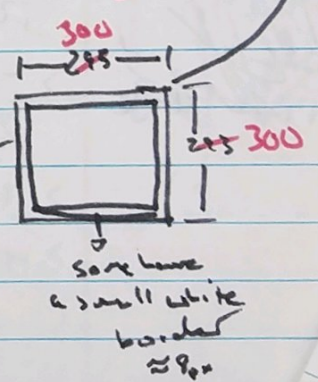 300
245
245 300
some have
a small white
border
≈ 9px